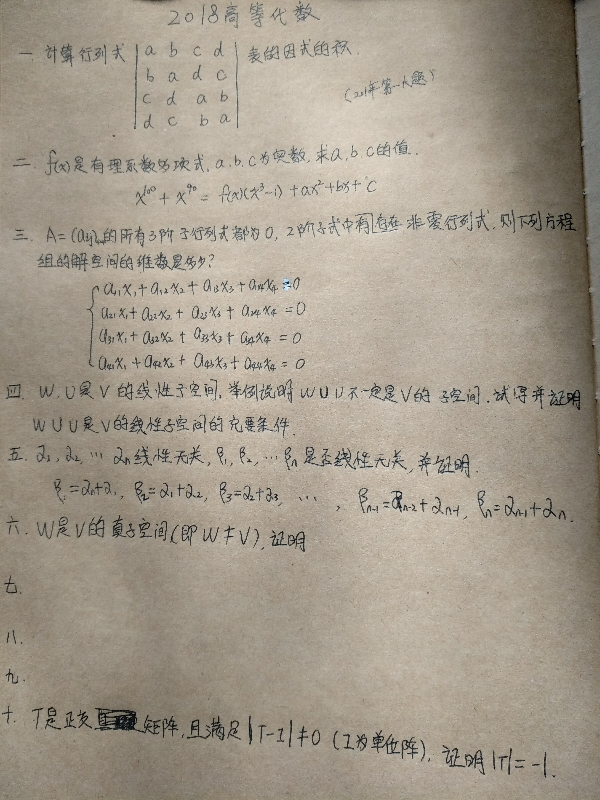 2018高等代数
一. 计算行列式 | a b c d | 表的因式的积.
b a d c
c d a b
d c b a
(2011年第一大题)
二. f(x)是有理系数多项式, a, b, c为实数, 求a, b, c的值.
x¹⁰⁰ + x⁹⁰ = f(x)(x³-1) + ax² + bx + c
三. A=(aij)₄ₓ₄的所有3阶子行列式都为0, 2阶子式中有存在非零行列式, 则下列方程
组的解空间的维数是多少?
a₁₁x₁ + a₁₂x₂ + a₁₃x₃ + a₁₄x₄ = 0
a₂₁x₁ + a₂₂x₂ + a₂₃x₃ + a₂₄x₄ = 0
a₃₁x₁ + a₃₂x₂ + a₃₃x₃ + a₃₄x₄ = 0
a₄₁x₁ + a₄₂x₂ + a₄₃x₃ + a₄₄x₄ = 0
四. W, U是V的线性子空间, 举例说明W∪U不一定是V的子空间. 试得并证明
W∪U是V的线性子空间的充要条件.
五. α₁, α₂, … αₙ线性无关, β₁, β₂, … βₙ是否线性无关, 并证明.
β₁=αₙ+α₁, β₂=α₁+α₂, β₃=α₂+α₃, …, βₙ₋₁=αₙ₋₂+αₙ₋₁, βₙ=αₙ₋₁+αₙ.
六. W是V的真子空间(即W≠V), 证明
七.
八.
九.
十. T是正交矩阵, 且满足|T-I|≠0 (I为单位阵), 证明|T|=-1.